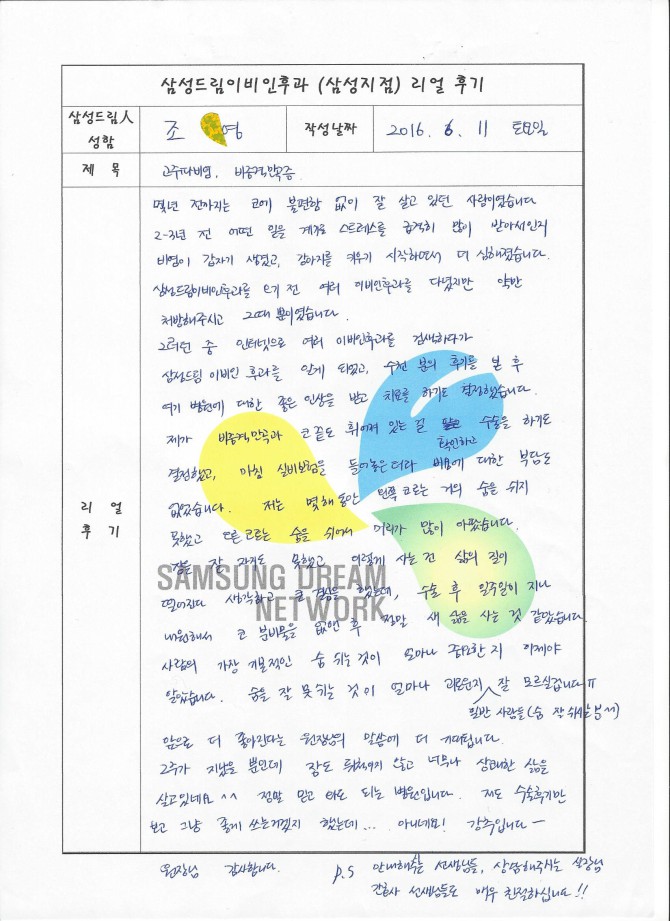 삼성드림이비인후과 (삼성지점) 리얼 후기
삼성드림人 성함
조 영
작성날짜
2016. 6. 11 토요일
제 목
고주파비염, 비중격만곡증
리 얼 후 기
몇년 전까지는 코에 불편함 없이 잘 살고 있던 사람이었습니다
2-3년 전 어떤 일을 계기로 스트레스를 급격히 많이 받아서인지
비염이 갑자기 생겼고, 강아지를 키우기 시작하면서 더 심해졌습니다.
삼성드림이비인후과를 오기 전 여러 이비인후과를 다녔지만 약만
처방해주시고 그때 뿐이었습니다.
그러던 중 인터넷으로 여러 이비인후과를 검색하다가
삼성드림 이비인 후과를 알게 되었고, 수천 분의 후기들 본 후
여기 병원에 대한 좋은 인상을 받고 치료를 하기로 결정했습니다.
제가 비중격만곡과 코 끝도 휘어져 있는 걸 확인하고 수술을 하기로
결정했고, 마침 실비보험을 들어놓은터라 비용에 대한 부담도
없었습니다. 저는 몇해 동안 왼쪽 코로는 거의 숨을 쉬지
못했고 다른 코로는 숨을 쉬어서 머리가 많이 아팠습니다.
잠을 잘 자지도 못했고 이렇게 사는 건 삶의 질이
떨어진다 생각하고 큰 결심을 했는데, 수술 후 일주일이 지나
내원해서 코 분비물을 없앤 후 정말 새 삶을 사는 것 같았습니다.
사람의 가장 기본적인 숨 쉬는 것이 얼마나 중요한 지 이제야
알았습니다. 숨을 잘 못 쉬는 것이 얼마나 괴로운지 잘 모르실겁니다 ㅠ
일반 사람들(숨 잘 쉬시는 분께서)
앞으로 더 좋아진다는 원장님의 말씀에 더 기대됩니다.
2주가 지났을 뿐인데 잠도 뒤척이지 않고 너무나 상쾌한 삶을
살고있네요 ^^ 정말 믿고 와도 되는 병원입니다. 저도 수술후기만
보고 그냥 좋게 쓰는거겠지 했는데... 아니네요! 강추입니다 ㅡ
원장님 감사합니다.
P.S 안내해주는 선생님들, 상담해주시는 실장님
간호사 선생님들도 매우 친절하십니다!!
SAMSUNG DREAM
NETWORK